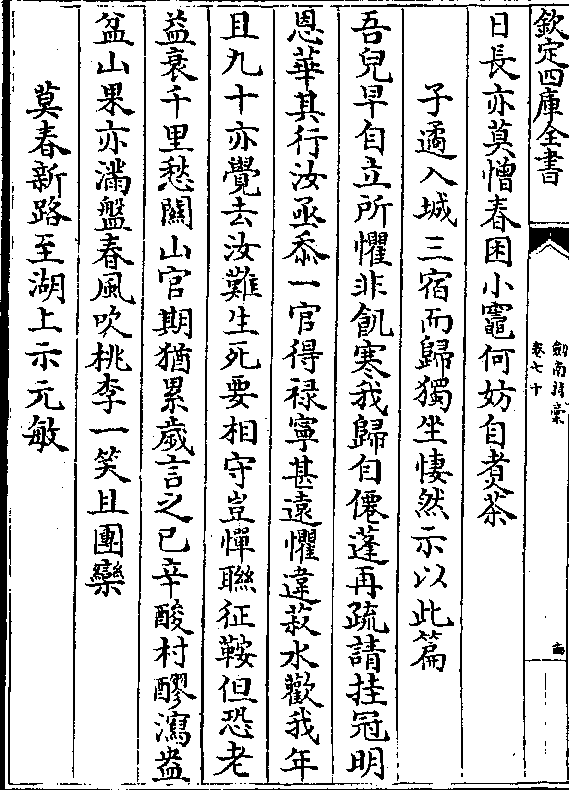 欽定四庫全書
劍南詩稾
卷七十
日長亦莫憎春困小竈何妨自煑茶
子遹入城三宿而歸獨坐悽然示以此篇
吾兒早自立所懼非飢寒我歸自僊蓬再疏請挂冠明
恩華其行汝亟忝一官得禄寧甚遠懼違菽水歡我年
且九十亦覺去汝難生死要相守豈憚聯征鞍但恐老
益衰千里愁關山官期猶累歲言之已辛酸村醪瀉盎
盆山果亦滿盤春風吹桃李一笑且團欒
莫春新路至湖上示元敏